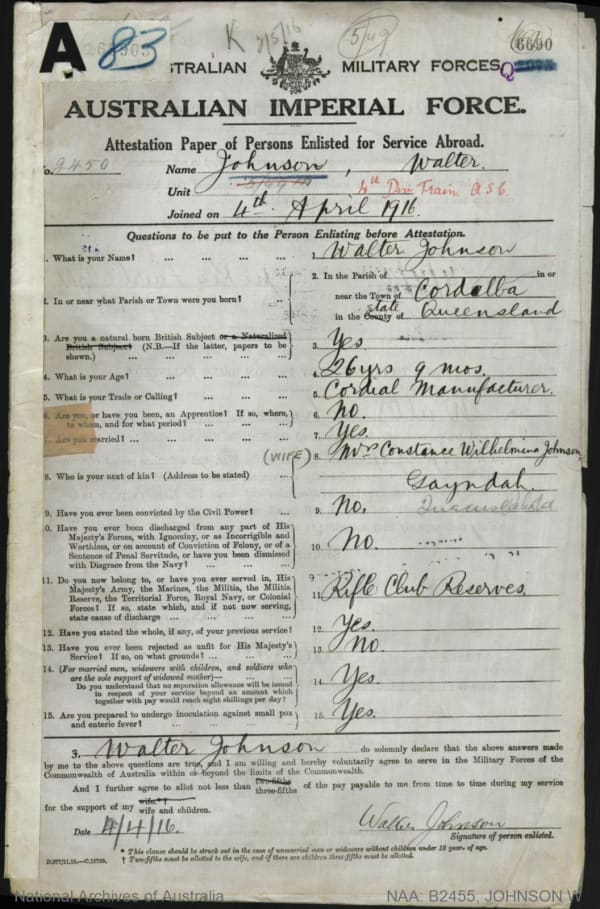 A 83 K 2/5/16 5/49 6690
AUSTRALIAN MILITARY FORCES
AUSTRALIAN IMPERIAL FORCE.
Attestation Paper of Persons Enlisted for Service Abroad.
No. 9450 Name Johnson, Walter.
Unit 4th Div Train A S C
Joined on 4th April 1916.
Questions to be put to the Person Enlisting before Attestation.
1. What is your Name? ... ... ... ... 1. Walter Johnson
2. In or near what Parish or Town were you born? .. 2. In the Parish of in or
near the Town of Cordalba
in the County of state Queensland
3. Are you a natural born British Subject or a Naturalized
British Subject? (N.B.—If the latter, papers to be
shown.) ... ... ... ... ... 3. Yes.
4. What is your Age? ... ... ... ... 4. 26yrs 9 mos.
5. What is your Trade or Calling? ... ... ... 5. Cordial Manufacturer.
6. Are you, or have you been, an Apprentice? If so, where,
to whom, and for what period? ... ... ... 6. No.
7. Are you married? ... ... ... ... ... 7. Yes.
8. Who is your next of kin? (Address to be stated) ... (WIFE) 8. Mrs Constance Wilhelmina Johnson
Gayndah.
Queensland
9. Have you ever been convicted by the Civil Power? ... 9. No.
10. Have you ever been discharged from any part of His
Majesty's Forces, with Ignominy, or as Incorrigible and
Worthless, or on account of Conviction of Felony, or of a
Sentence of Penal Servitude, or have you been dismissed
with Disgrace from the Navy? ... ... ... 10. No.
11. Do you now belong to, or have you ever served in, His
Majesty's Army, the Marines, the Militia, the Militia
Reserve, the Territorial Force, Royal Navy, or Colonial
Forces? If so, state which, and if not now serving,
state cause of discharge ... ... ... ... 11. Rifle Club Reserves.
12. Have you stated the whole, if any, of your previous service? 12. Yes.
13. Have you ever been rejected as unfit for His Majesty's
Service? If so, on what grounds? ... ... ... 13. No.
14. (For married men, widowers with children, and soldiers who
are the sole support of widowed mother)—
Do you understand that no separation allowance will be issued
in respect of your service beyond an amount which
together with pay would reach eight shillings per day? 14. Yes.
15. Are you prepared to undergo inoculation against small pox
and enteric fever? ... ... ... ... 15. Yes.
I, Walter Johnson do solemnly declare that the above answers made
by me to the above questions are true, and I am willing and hereby voluntarily agree to serve in the Military Forces of the
Commonwealth of Australia within or beyond the limits of the Commonwealth.
And I further agree to allot not less than two-fifths three-fifths of the pay payable to me from time to time during my service
for the support of my wife * † wife and children.
Date 4/4/16. Walter Johnson
Signature of person enlisted.
* This clause should be struck out in the case of unmarried men or widowers without children under 18 years of age.
† Two-fifths must be allotted to the wife, and if there are children three-fifths must be allotted.
National Archives of Australia NAA: B2455, JOHNSON W